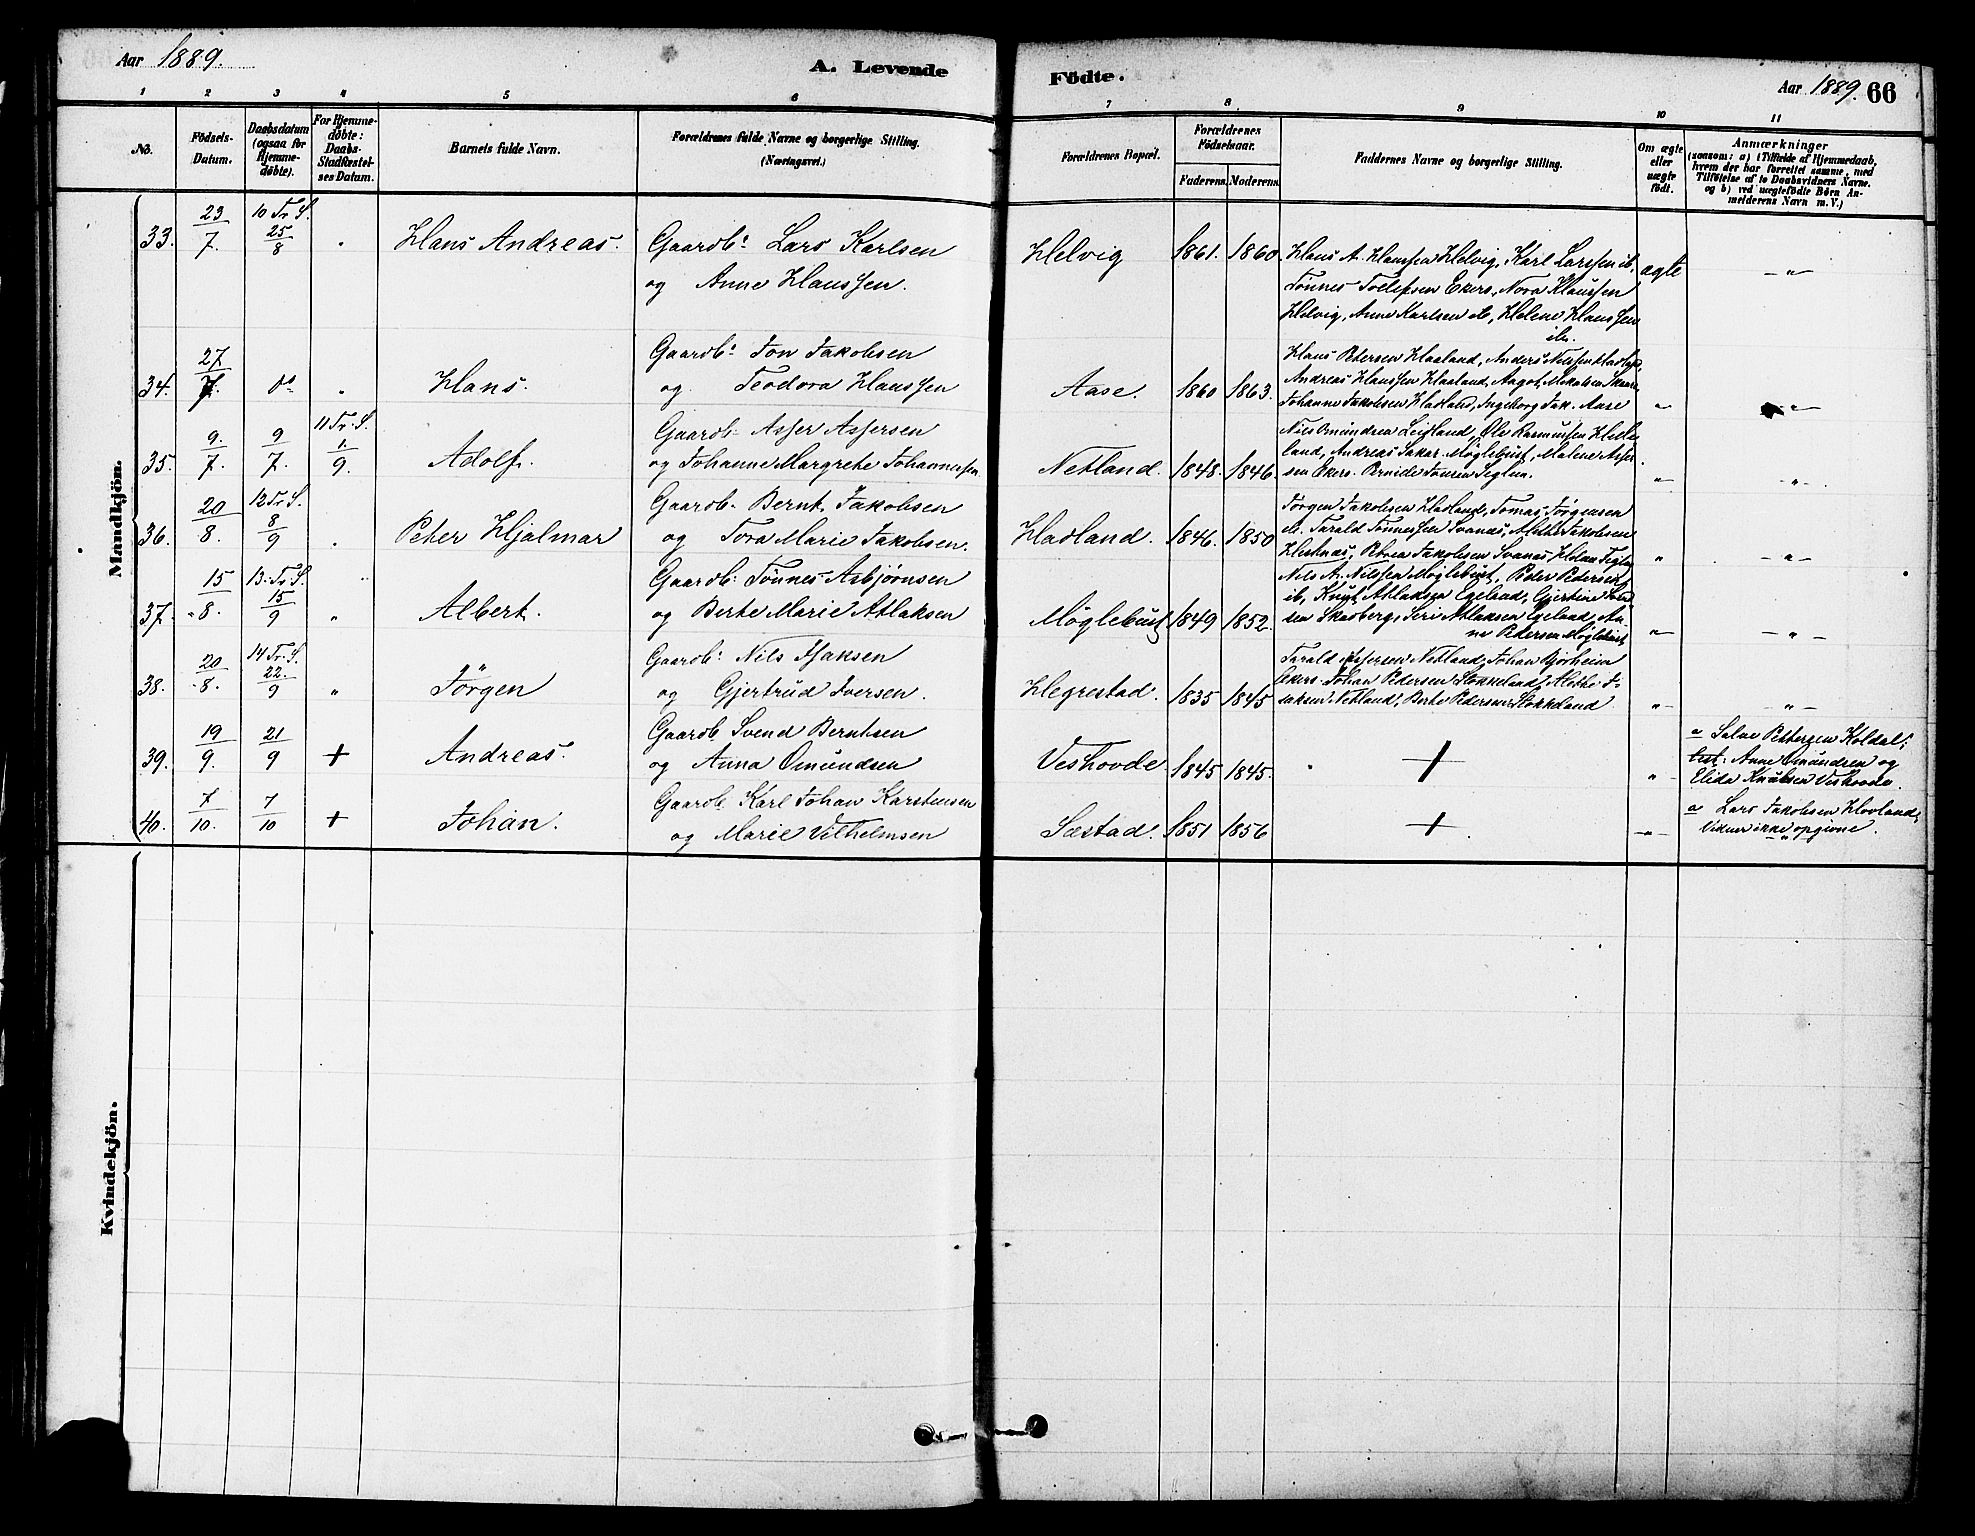 Aar 1889.
A. Levende
Födte.
Aar 1889. 66
1 2 3 4 5 6 7 8 9 10 11
No.
Födsels-
Datum.
Daabsdatum
(ogsaa for
Hjemme-
døbte).
For Hjemme-
døbte:
Daabs-
Stadfæstel-
ses Datum.
Barnets fulde Navn.
Forældrenes fulde Navne og borgerlige Stilling.
(Næringsvei.)
Forældrenes Bopæl.
Forældrenes
Födselsaar.
Faderens. Moderens.
Faddernes Navne og borgerlige Stilling.
Om ægte
eller
uægte
födt.
Anmærkninger
(saasom: a) i Tilfælde af Hjemmedaab,
hvem der har forrettet samme, med
Tilføielse af to Daabsvidners Navne.
og b) ved uægtefödte Börn An-
melderens Navn m. V.)
Mandkjön.
33. 23/7. 10 Tr. S. 25/8 " Hans Andreas.
Gaardb: Lars Karlsen
og Anne Hanssen.
Helvig 1861. 1860
Hans A. Hanssen Helvig, Karl Larssen ib.
Tønnes Toelefsen Ekers., Nora Klaussen
Helvig, Anne Karlsen ib, Helene Hanssen
ib.
ægte — " —
34. 27/7. do " Hans.
Gaardb: Jon Jakobsen
og Teodora Hanssen
Aase. 1860 1863.
Hans Petersen Haaland, Anders Nilssen
Andreas Hanssen Haaland, Aagot Mikalsen
Johanne Jakobsen Hadland, Ingeborg Jak. Aase
— " —
35. 9./7. 9/7. 11 Tr. S. 1./9. Adolf.
Gaardb. Asser Assersen
og Johanne Margrete Johannessen
Netland. 1848. 1846.
Nils Omundsen Leigland, Ole Rasmussen Helle-
land, Andreas Møglebust, Malene Asser-
sen Ekers. Pernide Jonsen Seglem.
— " —
36. 20/8. 12 Tr. S. 8/9 " Peter Hjalmar
Gaardb. Bernt Jakobsen
og Tora Marie Jakobsen.
Hadland. 1846. 1850
Jørgen Jakobsen Hadland, Tomas Jørgensen
ib. Tarald Tønnessen Svanæs, Jakobsen
Hestnæs, Jakobsen Svanæs
" — " —
37. 15/8. 13. Tr. S. 15/9 " Albert.
Gaardb: Tønnes Asbjørnsen
og Berte Marie Atlaksen
Møglebust 1849 1852.
Nils A. Nilssen Møglebust, Peder Pedersen
ib, Knut Atlaksen Egeland, Gjertine
sen Skadberg, Seri Atlaksen Egeland, An-
ne Pedersen Møglebust
— " —
38. 20/8. 14 Tr. S. 22./9 " Jörgen
Gaardb: Nils Isaksen
og Gjertrud Iversen.
Hegrestad. 1835 1845
Tarald Assersen Netland, Johan Bjorheim
Ekers. Johan Pedersen Stokkeland, Alethe I-
saksen Netland, Berte Pedersen Stokkeland
— " —
39. 19/9. 21/9 + Andreas.
Gaardb. Svend Berntsen
og Anna Omundsen
Veshovde 1845 1845.
+
a Salve Petersen Koldal;
test: Anne Omundsen og
Elida Knudsen Veshovde.
40. 7/10. 7/10 + Johan.
Gaardb. Karl Johan Karstensen
og Marie Vilhelmsen
Sæstad. 1851 1856
+
a Lars Jakobsen Hovland,
Vidner ikke opgivne.
Kvindekjön.